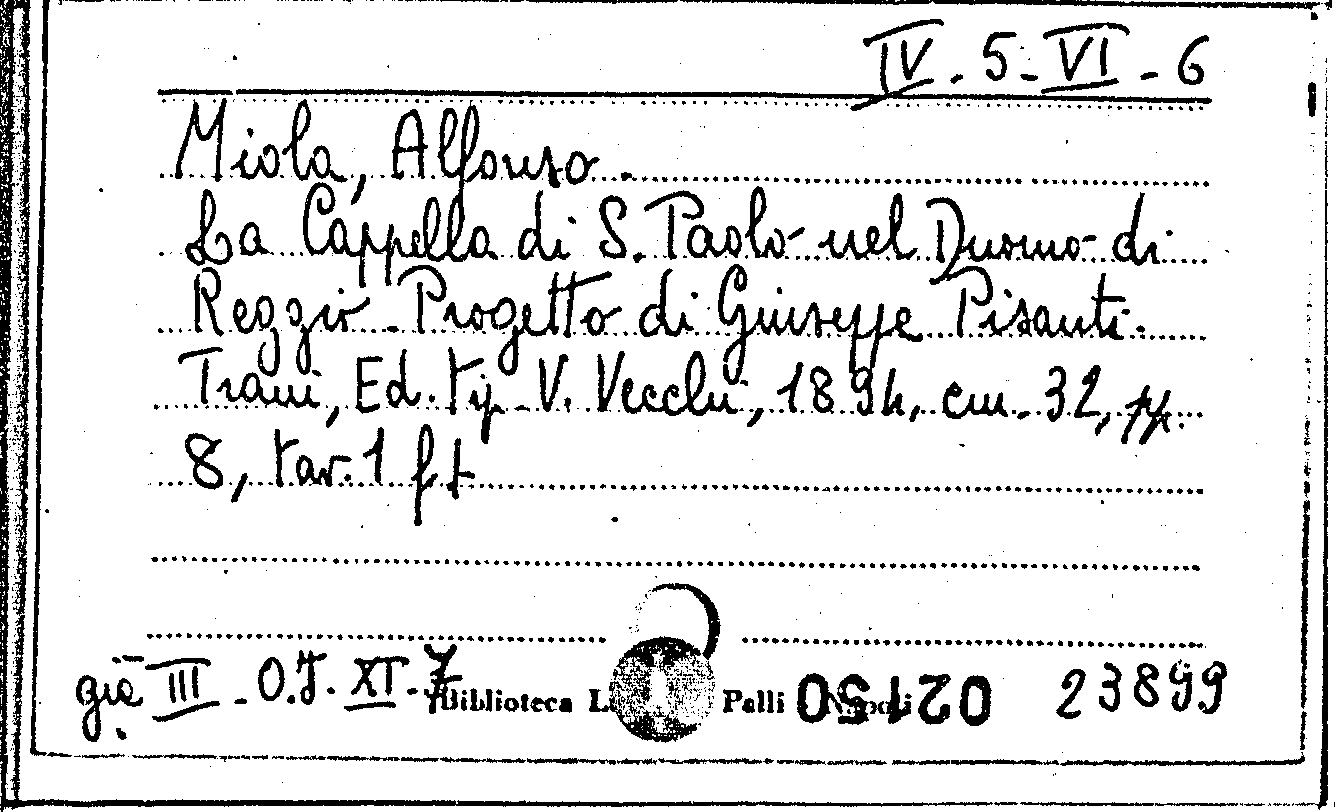 IV. 5-VI-6
Miola, Alfonso.
La Cappella di S. Paolo nel Duomo di
Reggio. Progetto di Giuseppe Pisanti.
Trani, Ed. tip. V. Vecchi, 1894, cm. 32, pp.
8, tav. 1 f.t.
già III - O.J. XI. 7
Biblioteca L Palli Napoli 02150 23899